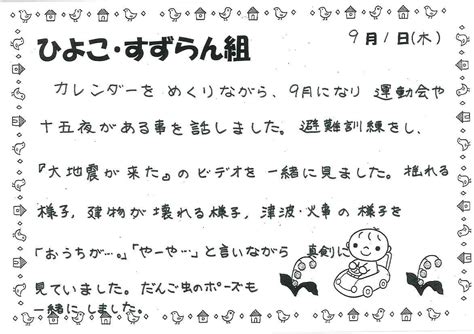 ひよこ・すずらん組
9月1日(木)
カレンダーを めくりながら、9月になり 運動会や
十五夜がある事を話しました。避難訓練をし、
『大地震が来た』のビデオを一緒に見ました。揺れる
様子，建物が壊れる様子，津波・火事の様子を
「おうちが…。」「やーや…」と言いながら 真剣に
見ていました。だんご虫のポーズも
一緒にしました。